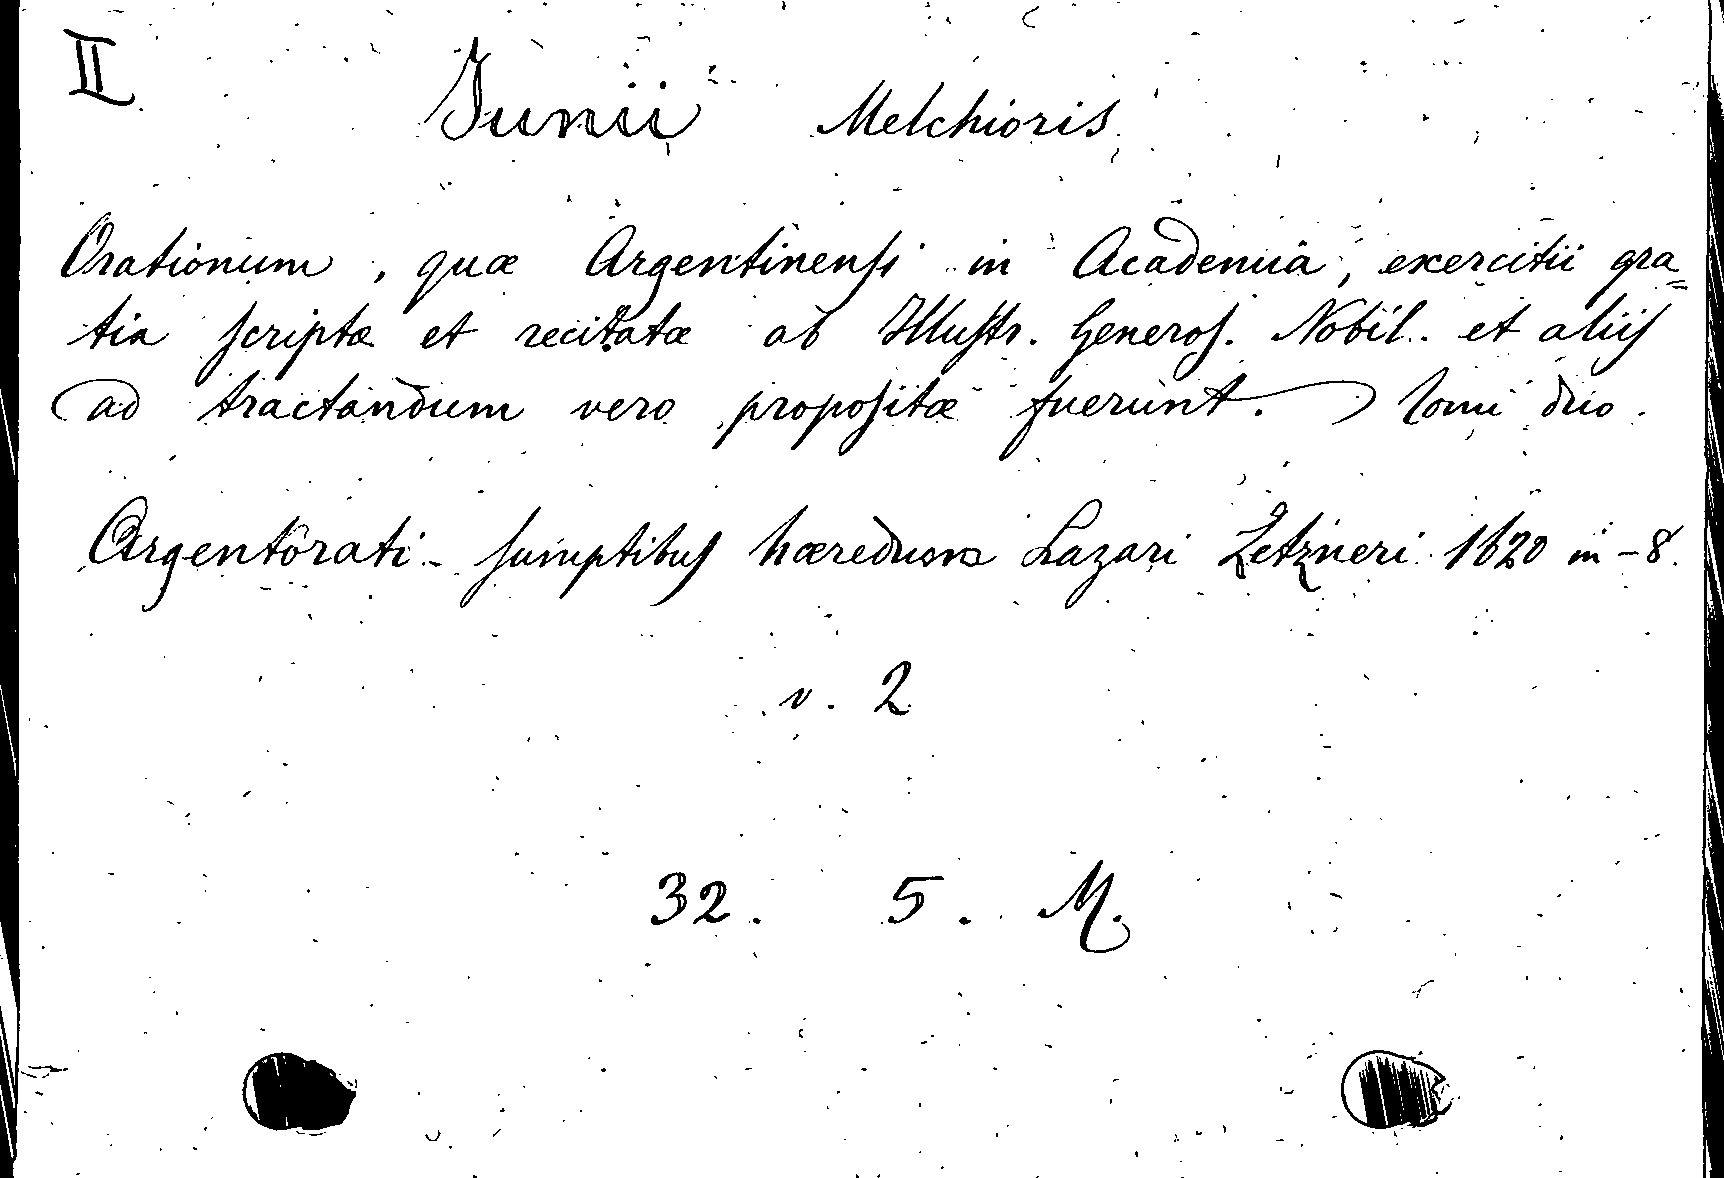 II
Junii Melchioris
Orationum, quæ Argentinensi in Academia, exercitii gra=
tia scriptæ et recitatæ ab Illustr. Generos. Nobil. et aliis
ad tractandum vero propositæ fuerunt. Tomi duo.
Argentorati - sumptibus hæredum Lazari Zetzneri 1620 in-8.
v. 2
32. 5. M.